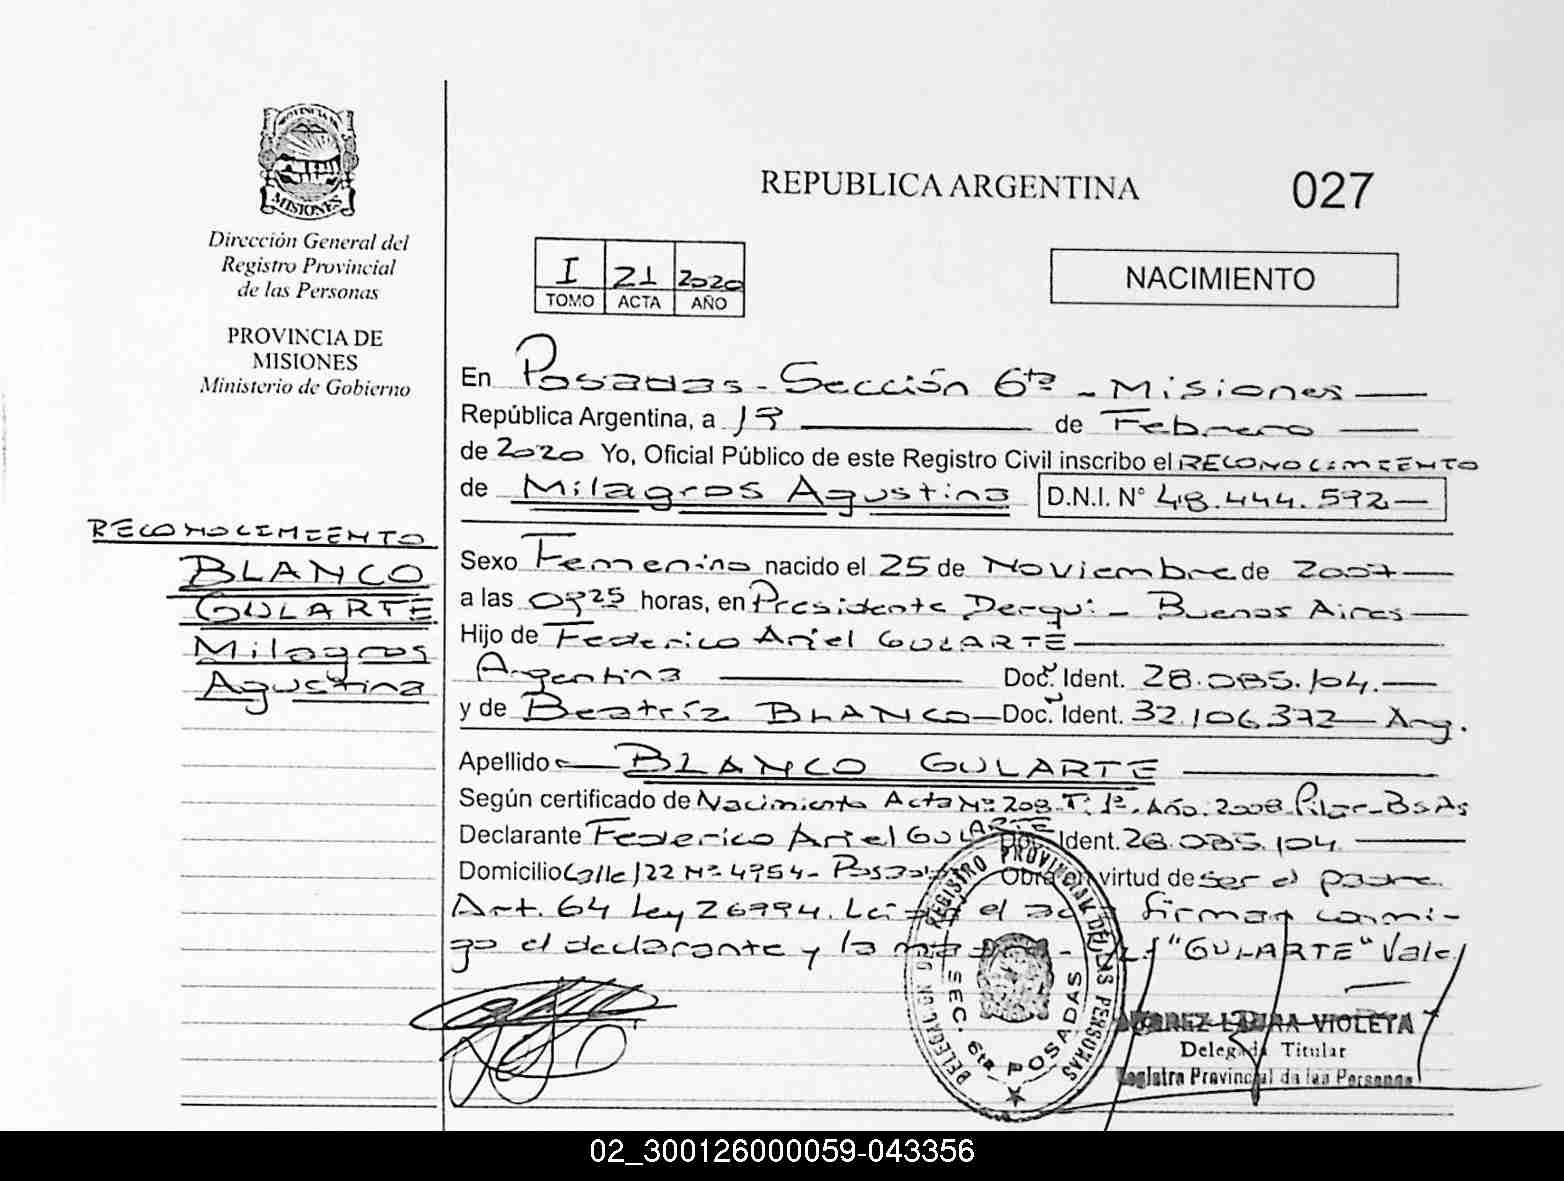 PROVINCIA DE
MISIONES
Dirección General del
Registro Provincial
de las Personas
PROVINCIA DE
MISIONES
Ministerio de Gobierno
REPUBLICA ARGENTINA
027
I 21 2020
TOMO ACTA AÑO
NACIMIENTO
En Posadas - Sección 6ta - Misiones
República Argentina, a 19 de Febrero
de 2020 Yo, Oficial Público de este Registro Civil inscribo el RECONOCIMIENTO
de Milagros Agustina D.N.I. N° 48.444.592
RECONOCIMIENTO
BLANCO
GULARTE
Milagros
Agustina
Sexo Femenino nacido el 25 de Noviembre de 2007
a las 0925 horas, en Presidente Derqui - Buenos Aires
Hijo de Federico Ariel GULARTE
Argentina Doc. Ident. 28.085.104.
y de Beatríz BLANCO Doc. Ident. 32.106.372 Arg.
Apellido BLANCO GULARTE
Según certificado de Nacimiento Acta Nº 208. Tº 1º. Año. 2008. Pilar - BsAs
Declarante Federico Ariel GULARTE Ident. 28.085.104
Domicilio Calle 122 Nº 4954 - Posadas Obra en virtud de ser el padre.
Art. 64 Ley 26994. el firman conmi-
go el declarante y la "GULARTE" Vale
DELEGACION DEL REGISTRO PROVINCIAL DE LAS PERSONAS
SEC. 6ta POSADAS
LAURA VIOLETA
Delegada Titular
Registro Provincial de las Personas
02_300126000059-043356